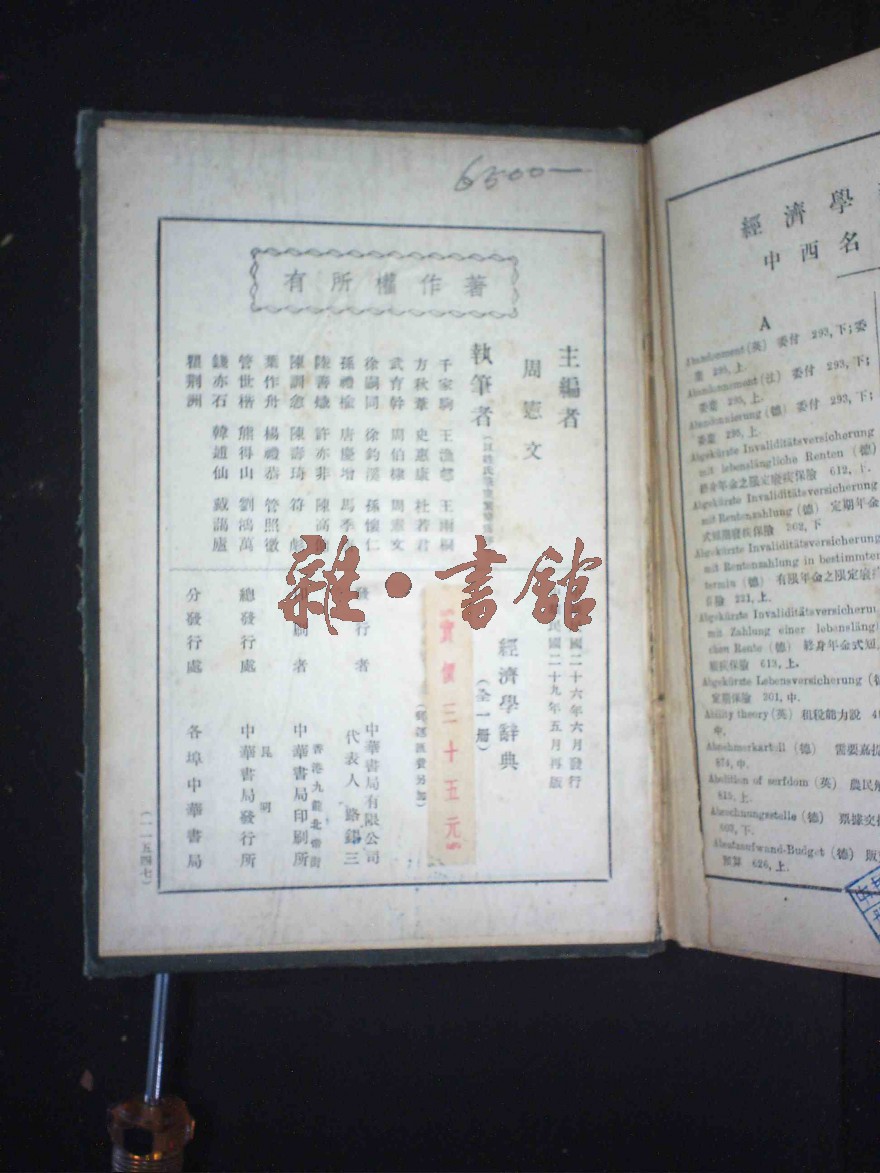 6500—
著作權所有
主編者
周憲文
執筆者
千家駒 王漁邨 王雨桐
方秋葦 史惠康 杜若君
武育幹 周伯棣 周憲文
徐嗣同 徐鈞溪 孫懷仁
孫禮榆 唐慶增 馬季
陸善熾 許亦非 陳高
陳訓悆 陳壽琦 符
葉作舟 楊禮恭 管照微
管世楷 熊得山 劉鴻萬
錢亦石 韓逋仙 戴藹廬
瞿荊洲
國二十六年六月發行
民國二十九年五月再版
經濟學辭典
(全一冊)
實價三十五元
(郵運匯費另加)
發行者 中華書局有限公司
代表人 路錫三
刷者 香港九龍北帝街
中華書局印刷所
總發行處 昆明
中華書局發行所
分發行處 各埠中華書局
(一一五四七)
雜·書館
經濟學
中西名
A
Abandonment (英) 委付 293, 下; 委
棄 295, 上.
Abandonnement (法) 委付 293, 下;
委棄 295, 上.
Abandonnierung (德) 委付 293, 下;
委棄 295, 上.
Abgekürzte Invaliditätsversicherung
mit lebenslängliche Renten (德)
終身年金之限定廢疾保險 612, 上.
Abgekürzte Invaliditätsversicherung
mit Rentenzahlung (德) 定期年金
式短期廢疾保險 202, 下
Abgekürzte Invaliditätsversicherung
mit Rentenzahlung in bestimmten
termin (德) 有限年金之限定廢疾
保險 221, 上.
Abgekürzte Invaliditätsversicherun
mit Zahlung einer lebensläng
chen Rente (德) 終身年金式短
廢疾保險 613, 上.
Abgekürzte Lebensversicherung
定期保險 201, 中.
Ability theory (英) 租稅能力說
中.
Abnehmerkartell (德) 需要嘉
674, 中.
Abolition of serfdom (英) 農民
815, 上.
Abrechnungsstelle (德) 票據交
603, 下.
Absatzaufwand-Budget (德) 販
預算 626, 上.